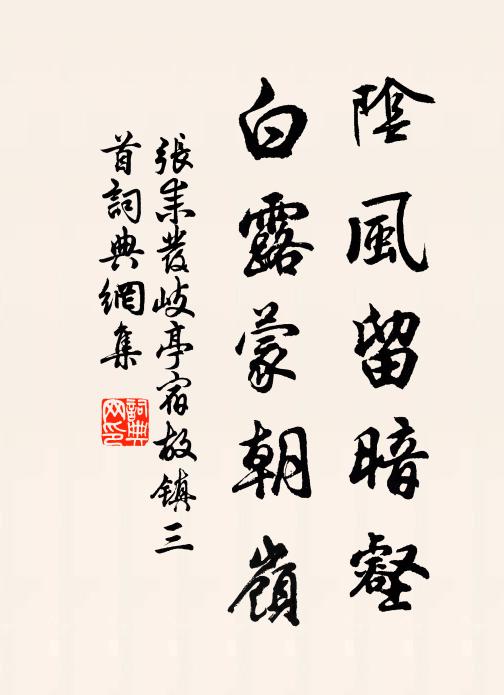 陰風留暗壑
白露蒙朝嶺
張耒發岐亭宿故鎮三
首詞典網集
詞典
网印